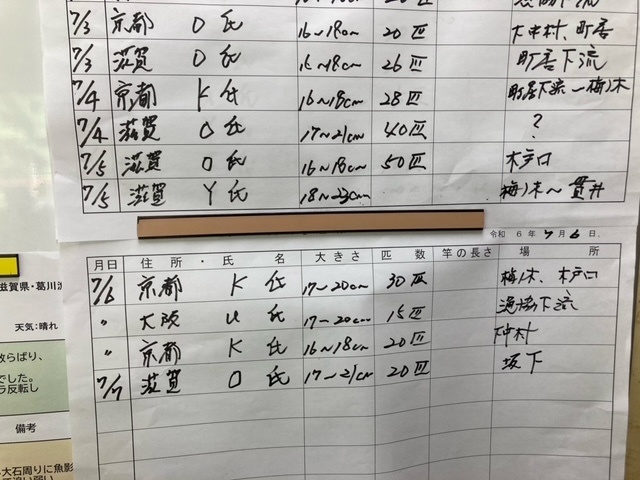 7/3 京都 O 氏 16~18cm 20匹 大中村、町居
7/3 滋賀 O 氏 16~18cm 26匹 町居下流
7/4 京都 K 氏 16~18cm 28匹 町居下流~梅ノ木
7/4 滋賀 O 氏 17~21cm 40匹 ?
7/5 滋賀 O 氏 16~18cm 50匹 木戸口
7/5 滋賀 Y 氏 18~23cm 梅ノ木~貫井
令和 6年 7月 6日
月日 住所・氏名 大きさ 匹数 竿の長さ 場所
7/6 京都 K 氏 17~20cm 30匹 梅ノ木、木戸口
〃 大阪 U 氏 17~20cm 15匹 漁協下流
〃 京都 K 氏 16~18cm 20匹 中村
7/7 滋賀 O 氏 17~21cm 20匹 坂下
滋賀県・葛川
天気:晴れ
でした。
ラ反転し
備考
大石周りに魚影